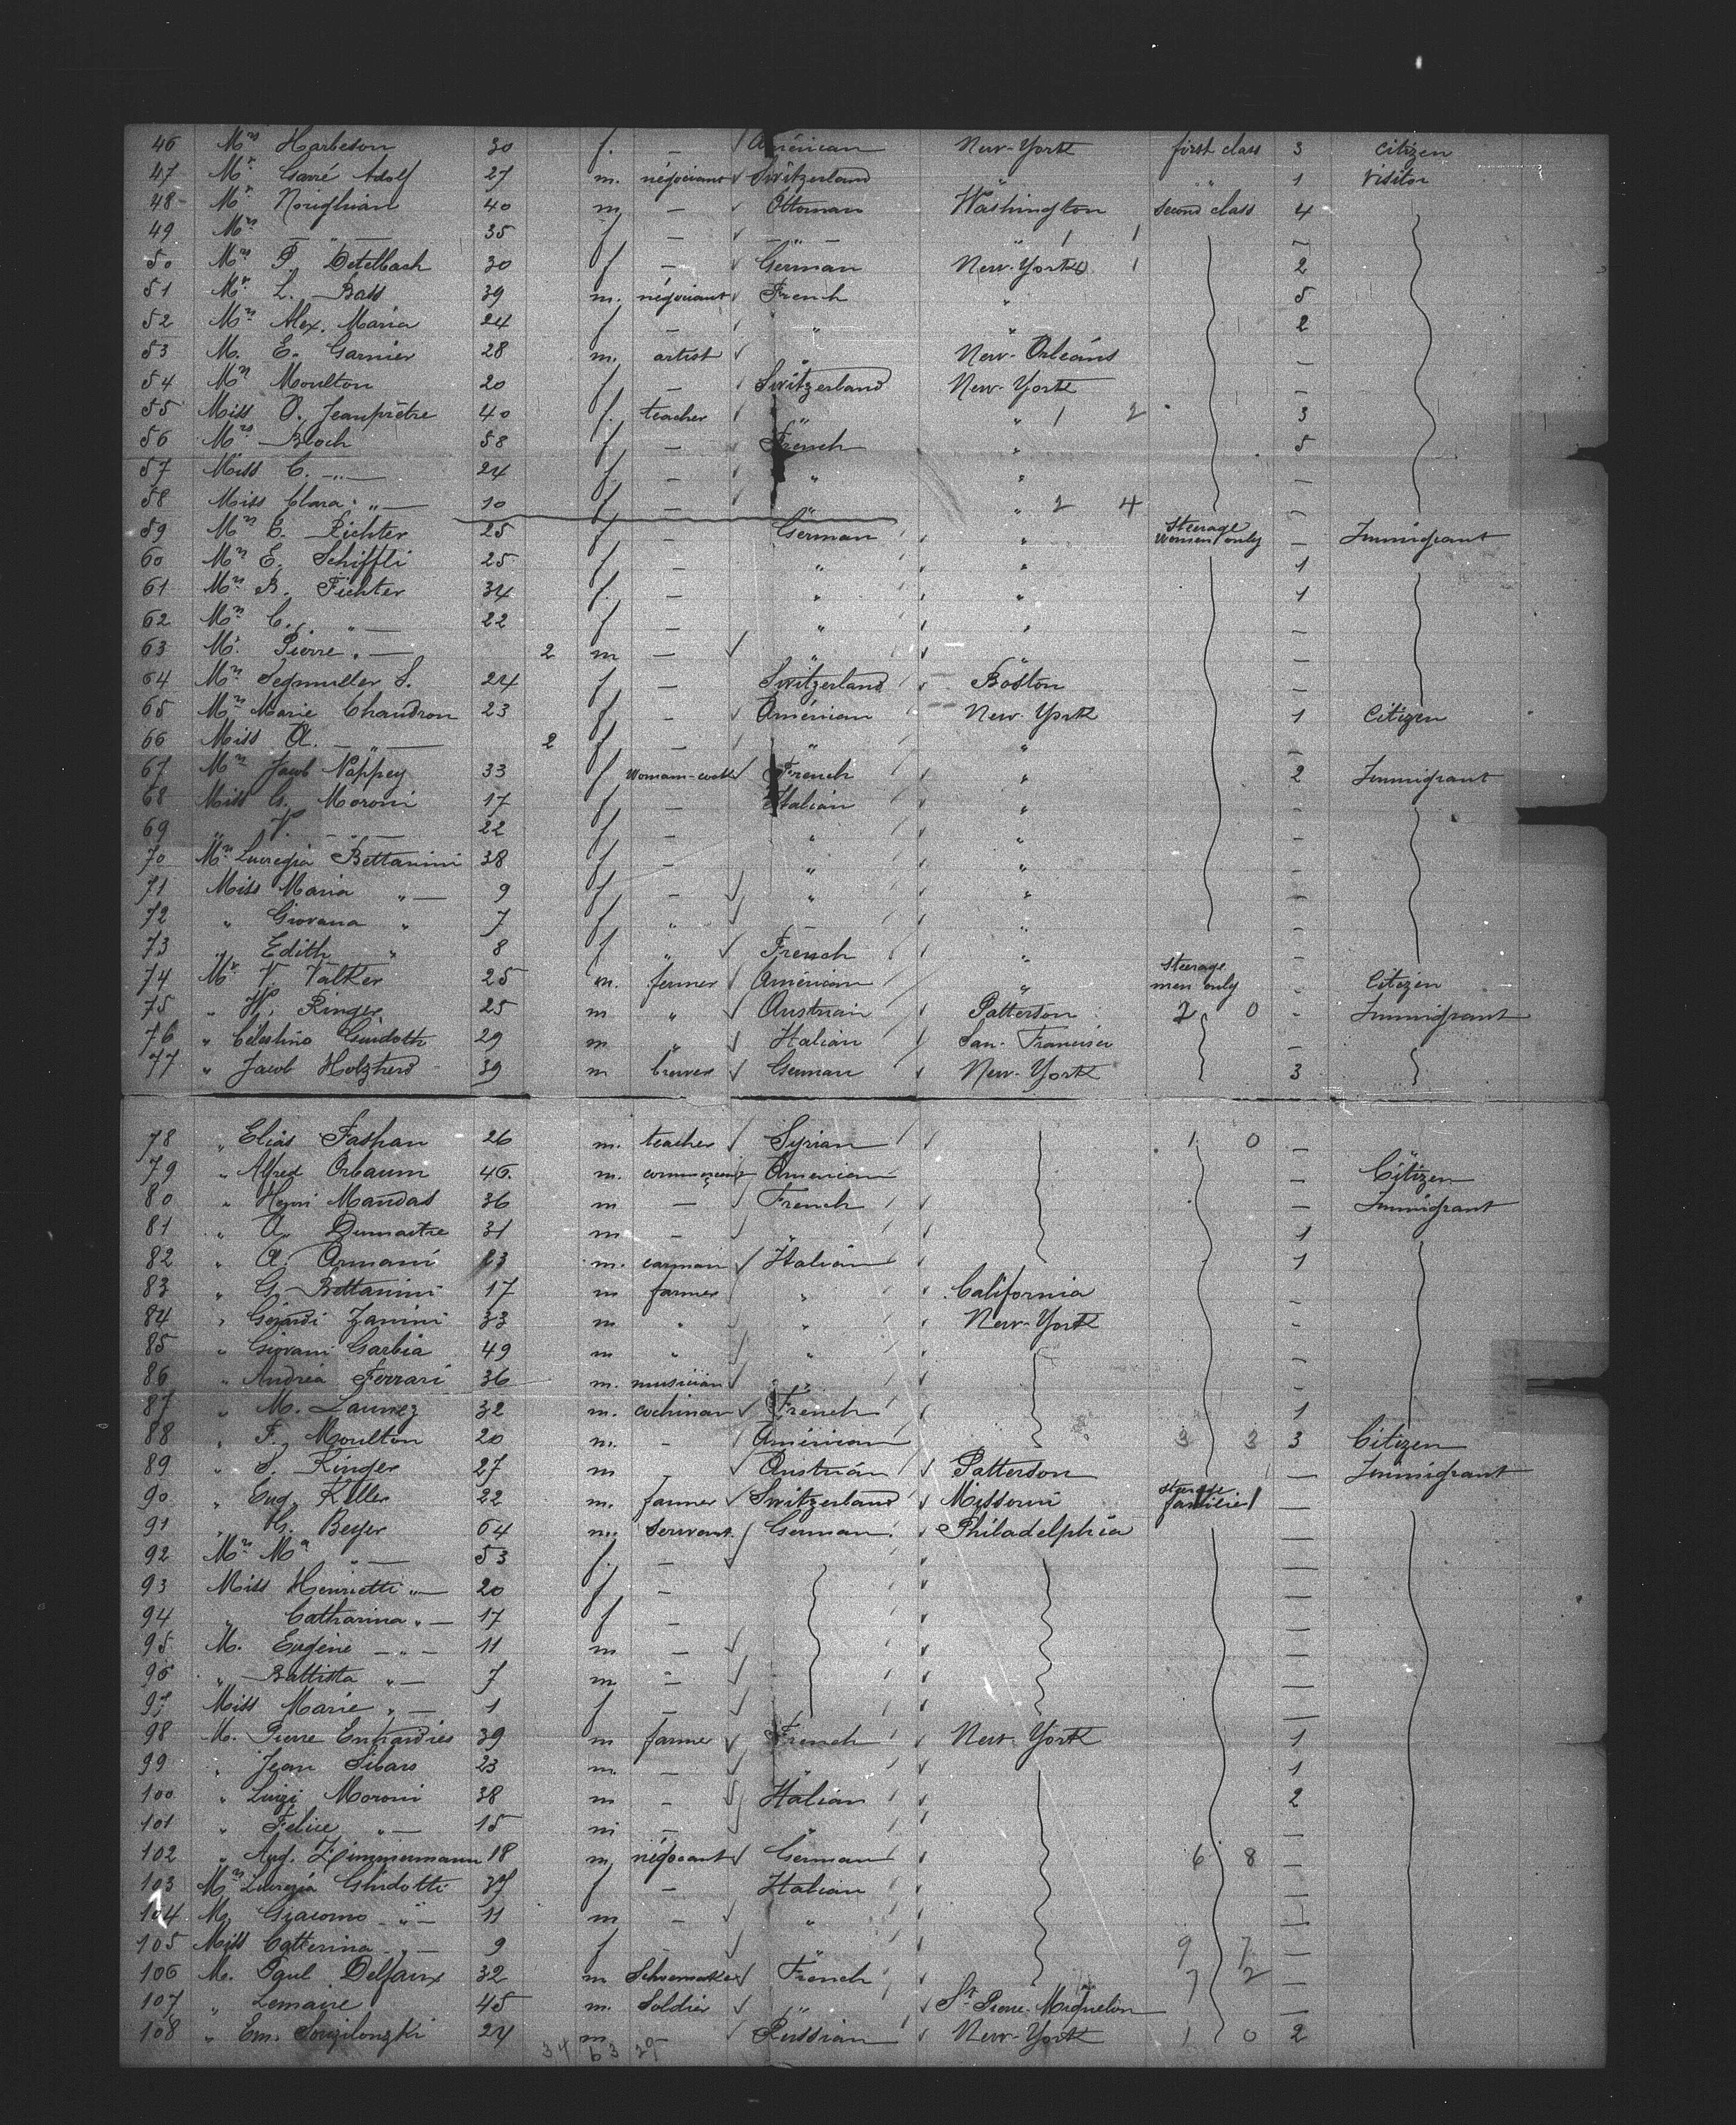 46 Mrs Harbeson 30 f. — American New-York first class 3 Citizen
47 Mr Garré Adolf 27 m. négociant Switzerland " " " 1 Visitor
48 Mr Norighian 40 m — Ottoman Washington Second class 4
49 Mrs — " — 35 f — — " — " 1 1 —
50 Mrs P. Detelbach 30 f — German New-York 1 2
51 Mr L. Bass 39 m. négociant French " 5
52 Mrs Alex. Maria 24 f — " " 2
53 M. E. Garnier 28 m. artist " New-Orleans —
54 Mrs Moulton 20 f — Switzerland New-York —
55 Miss O. Jeanprêtre 40 f. teacher " " 1 2 3
56 Mrs Bloch 58 f — French " 5
57 Miss C. — " — 24 f — " " —
58 Miss Clara " — 10 f — " " 2 4 —
59 Mrs C. Richter 25 f — German " Steerage women only — Immigrant
60 Mrs E. Schiffli 25 f — " " 1
61 Mrs B. Fichter 34 f. — " " 1
62 Mrs C. " — 22 f — " " —
63 M. Pierre " — 2 m — " " —
64 Mrs Segmuller S. 24 f — Switzerland Boston —
65 Mrs Marie Chaudron 23 f — American New-York 1 Citizen
66 Miss A. — " — 2 f — " " —
67 Mrs Jacob Nappey 33 f French " 2 Immigrant
68 Miss G. Moroni 17 f — Italian " —
69 " V. — " — 22 f — " " —
70 Mrs Lucregia Bettanini 38 f — " " —
71 Miss Maria " — 9 f — " " —
72 " Giovana " 7 f " " " —
73 " Edith " 8 f " French " —
74 Mr V. Valker 25 m. farmer American " Steerage men only - Citizen
75 " W. Ringer 25 m " Austrian Patterson 2 0 - Immigrant
76 " Célestino Guidotti 29 m " Italian San-Francisco —
77 " Jacob Holzherd 39 m brewer German New-York 3
78 " Elias Fashan 26 m. teacher Syrian 1 0 — "
79 " Alfred Orbaum 46. m. American — Citizen
80 " Henri Mandas 36 m — French — Immigrant
81 " A. Dumaitre 31 m — " 1
82 " A. Armani 23 m. carman Italian 1
83 " G. Bettanini 17 m farmer " California -
84 " Girardi Zanini 33 m " " New-York -
85 " Giovani Garbia 49 m " " —
86 " Andréa Ferrari 36 m. musician " -
87 " M. Launez 32 m. cochman French 1
88 " F. Moulton 20 m. - American 3 3 3 Citizen
89 " S. Ringer 27 m — Austrian Patterson — Immigrant
90 " Eug. Keller 22 m. farmer Switzerland Missouri steerage families —
91 " G. Beyer 64 m. Servant German Philadelphia —
92 Mrs Ma " — 53 f. — —
93 Miss Henrietti " — 20 f — —
94 " Catharina " — 17 f — —
95 M. Eugène — " — 11 m — —
96 " Battista " — 7 m — —
97 Miss Marie " — 1 f — —
98 M. Pierre Enhardies 39 m farmer French New-York 1
99 " Jean Sibars 23 m. — " 1
100 " Luigi Moroni 38 m — Italian 2
101 " Felice " — 15 m — " —
102 " Aug. Zimmermann 18 m négociant German 6 8 —
103 Mrs Lucrezia Ghidotti 37 f — Italian —
104 M. Giacomo " — 11 m — " —
105 Miss Catterina " — 9 f — " 9 7 —
106 M. Paul Delfaux 32 m Schoemaker French 7 2 —
107 " Lemaire 45 m. Soldier " St Pierre-Miquelon —
108 " Em. 24 m Russian New-York 1 0 2
34 63 29